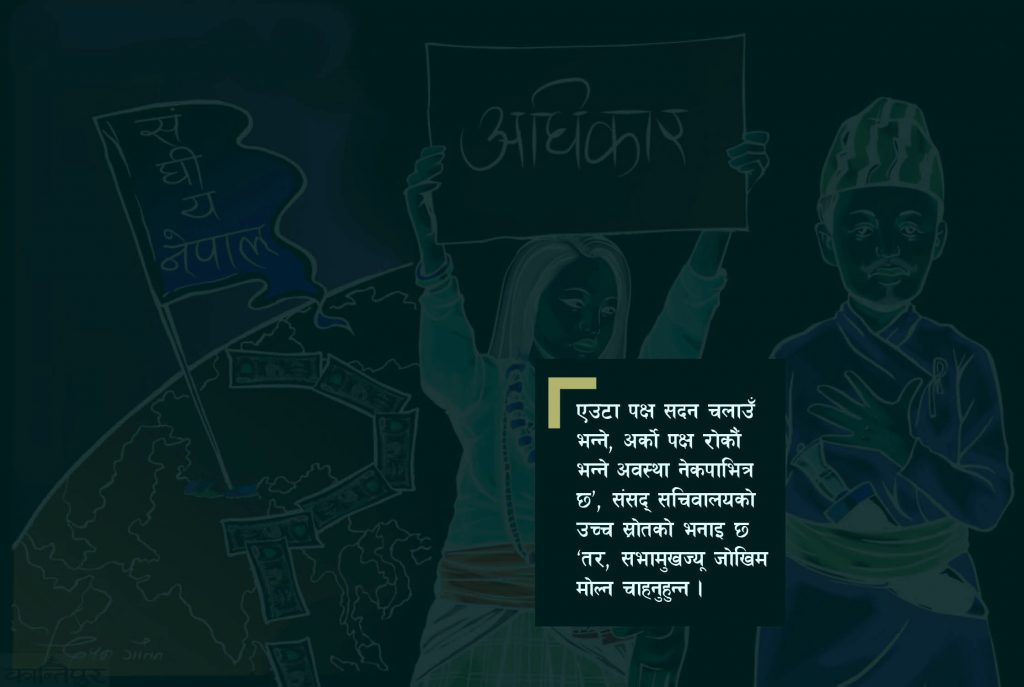 सं
घी
य
नेपाल
अधिकार
एउटा पक्ष सदन चलाउँ
भन्ने, अर्को पक्ष रोकौं
भन्ने अवस्था नेकपाभित्र
छ’, संसद् सचिवालयको
उच्च स्रोतको भनाइ छ
‘तर, सभामुखज्यू जोखिम
मोल्न चाहनुहुन्न ।
कान्तिपुर